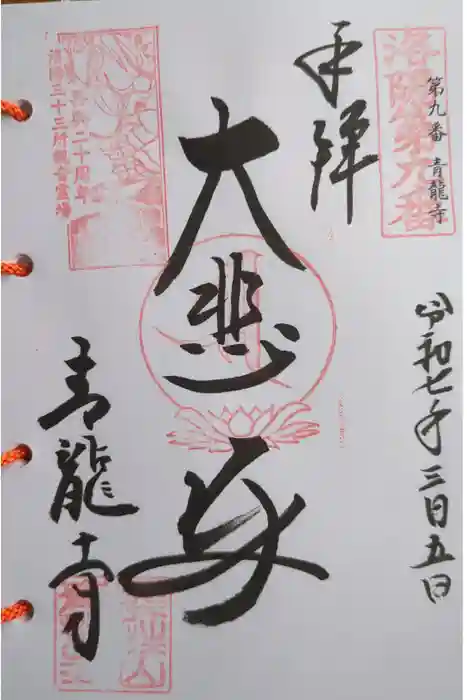 洛陽第六番
第九番 青龍寺
奉拝
令和七年三月五日
大悲殿
再興二十周年
洛陽三十三所観音霊場
青龍寺